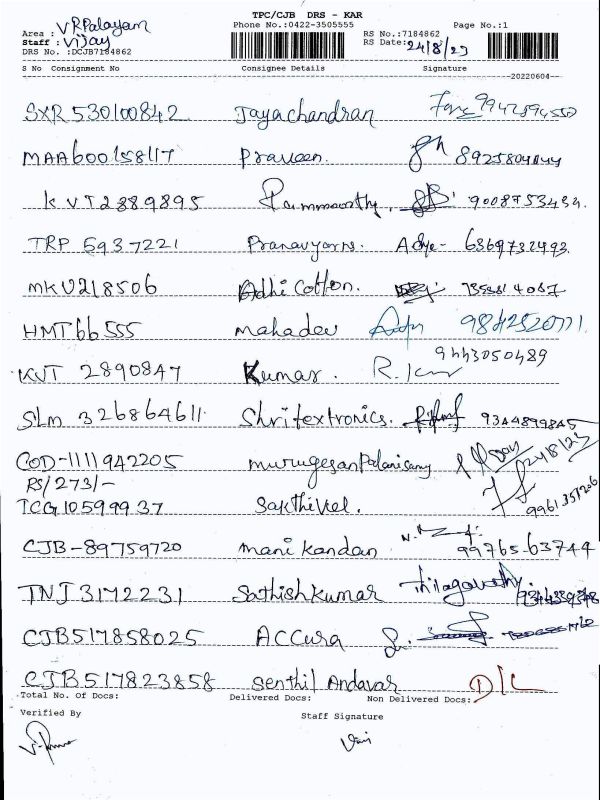 TPC/CJB DRS - KAR
Area : V R Palayam Phone No.:0422-3505555 Page No.:1
Staff : Vijay RS No.:7184862
DRS No. :DCJB7184862 RS Date: 24/8/23
S No Consignment No Consignee Details Signature
20220604
SXR 530100842 Jayachandran 9942594550
MAA600158117 Praveen. 8925804044
KVT2889895 9008753434.
TRP 5937221 Pranavyarns. 6369732493
MKU218506 Adhi Cotton.
HMT66555 Mahadev 9842520771
KVT 2890847 Kumar. R.K 9443050489
SLM 326864611 Shritextronics. 9344899845
COD-1111942205 MurugesanPalanisamy 24/8/23
RS/273/-
TCG105999 37 Sakthivel. 9961351206
CJB-89759720 Mani Kandan 99765 63744
TNJ3172231 Sathishkumar Thilagavathy.
CJB517858025 ACCura
CJB517823858 Senthil Andavar D/L
Total No. Of Docs: Delivered Docs: Non Delivered Docs:
Verified By Staff Signature